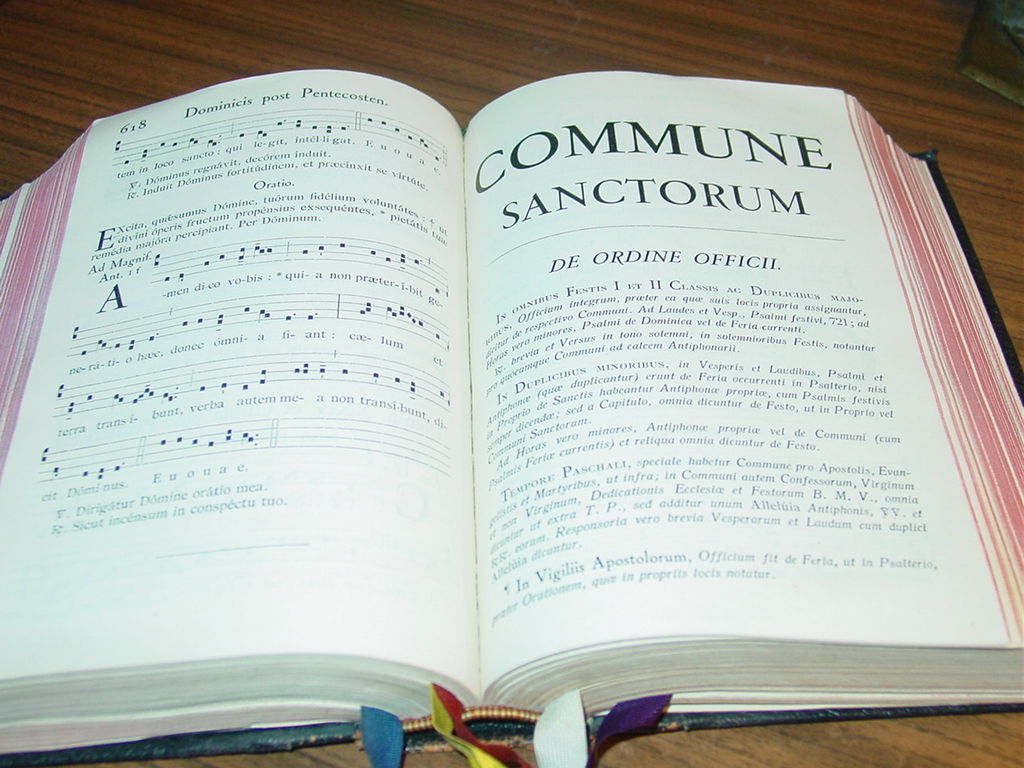 618
Dominicis post Pentecosten.
tem in loco sancto: qui le-git, intél-ligat. E u o u a e.
℣. Dóminus regnávit, decórem índuit.
℟. Induit Dóminus fortitúdinem, et præcínxit se virtúte.
Oratio.
EXcita, quǽsumus Dómine, tuórum fidélium voluntátes : † ut
divíni óperis fructum propénsius exsequéntes, * pietátis tuæ
remédia majóra percípiant. Per Dóminum.
Ad Magnif.
Ant. 1 f
A-men dico vo-bis : * qui- a non præter-í-bit ge-
ne-rá-ti- o hæc, donec ómni- a fi- ant : cæ- lum et
terra trans-í- bunt, verba autem me- a non transí-bunt, di-
cit Dómi-nus. E u o u a e.
℣. Dirigátur Dómine orátio mea.
℟. Sicut incénsum in conspéctu tuo.
COMMUNE
SANCTORUM
DE ORDINE OFFICII.
IN OMNIBUS FESTIS I ET II CLASSIS AC DUPLICIBUS MAJO-
RIBUS, Officium integrum, præter ea quæ suis locis propria assignantur,
dicitur de respectivo Communi. Ad Laudes et Vesp., Psalmi festivi, 721; ad
Horas vero minores, Psalmi de Dominica vel de Feria currenti.
℟. brevia et Versus in tono solemni, in solemnioribus Festis, notantur
pro quocumque Communi ad calcem Antiphonarii.
IN DUPLICIBUS MINORIBUS, in Vesperis et Laudibus, Psalmi et
Antiphonæ (quæ duplicantur) erunt de Feria occurrenti in Psalterio, nisi
in Proprio de Sanctis habeantur Antiphonæ propriæ, cum Psalmis festivis
semper dicendæ; sed a Capitulo, omnia dicuntur de Festo, ut in Proprio vel
Communi Sanctorum.
Ad Horas vero minores, Antiphonæ propriæ vel de Communi (cum
Psalmis Feriæ currentis) et reliqua omnia dicuntur de Festo.
TEMPORE PASCHALI, speciale habetur Commune pro Apostolis, Evan-
gelistis et Martyribus, ut infra; in Communi autem Confessorum, Virginum
et non Virginum, Dedicationis Ecclesiæ et Festorum B. M. V., omnia
dicuntur ut extra T. P., sed additur unum Allelúia Antiphonis, ℣℣. et
℟℟. eorum. Responsoria vero brevia Vesperarum et Laudum cum duplici
Allelúia dicuntur.
¶ In Vigiliis Apostolorum, Officium fit de Feria, ut in Psalterio,
præter Orationem, quæ in propriis locis notatur.